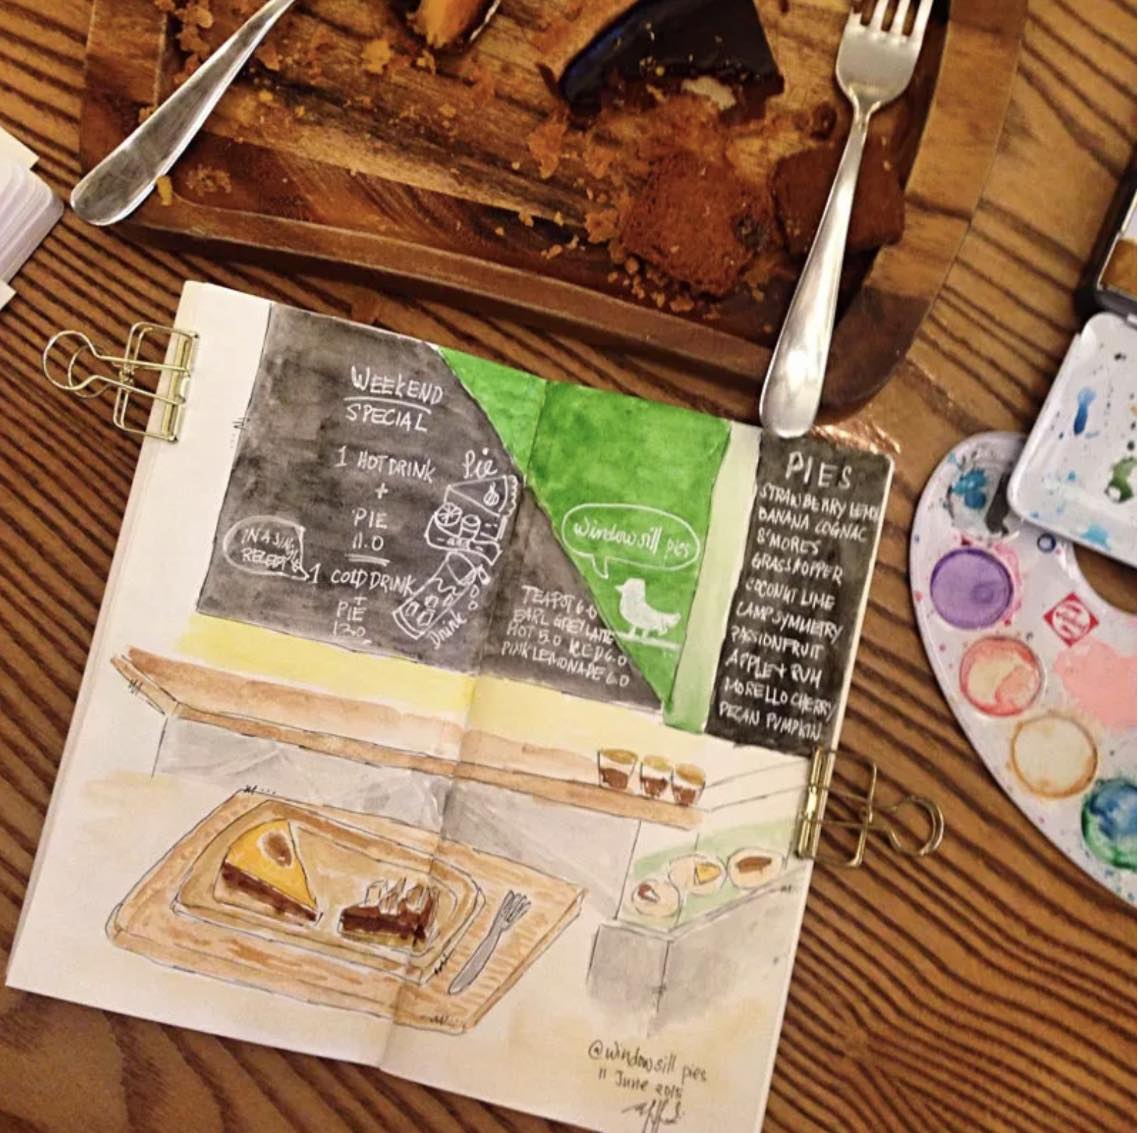 WEEKEND
SPECIAL
1 HOT DRINK
+
PIE
11.0
1 COLD DRINK
+
PIE
12.0
IN A
Pie
Drink
windowsill pies
TEAPOT 6.0
EARL GREY LATTE
HOT 5.0 ICED 6.0
PINK LEMONADE 6.0
PIES
STRAWBERRY LEMON
BANANA COGNAC
S'MORES
GRASSHOPPER
COCONUT LIME
CAMP SYMMETRY
PASSIONFRUIT
APPLE + RUM
MORELLO CHERRY
PECAN PUMPKIN
@windowsill pies
11 June 2015